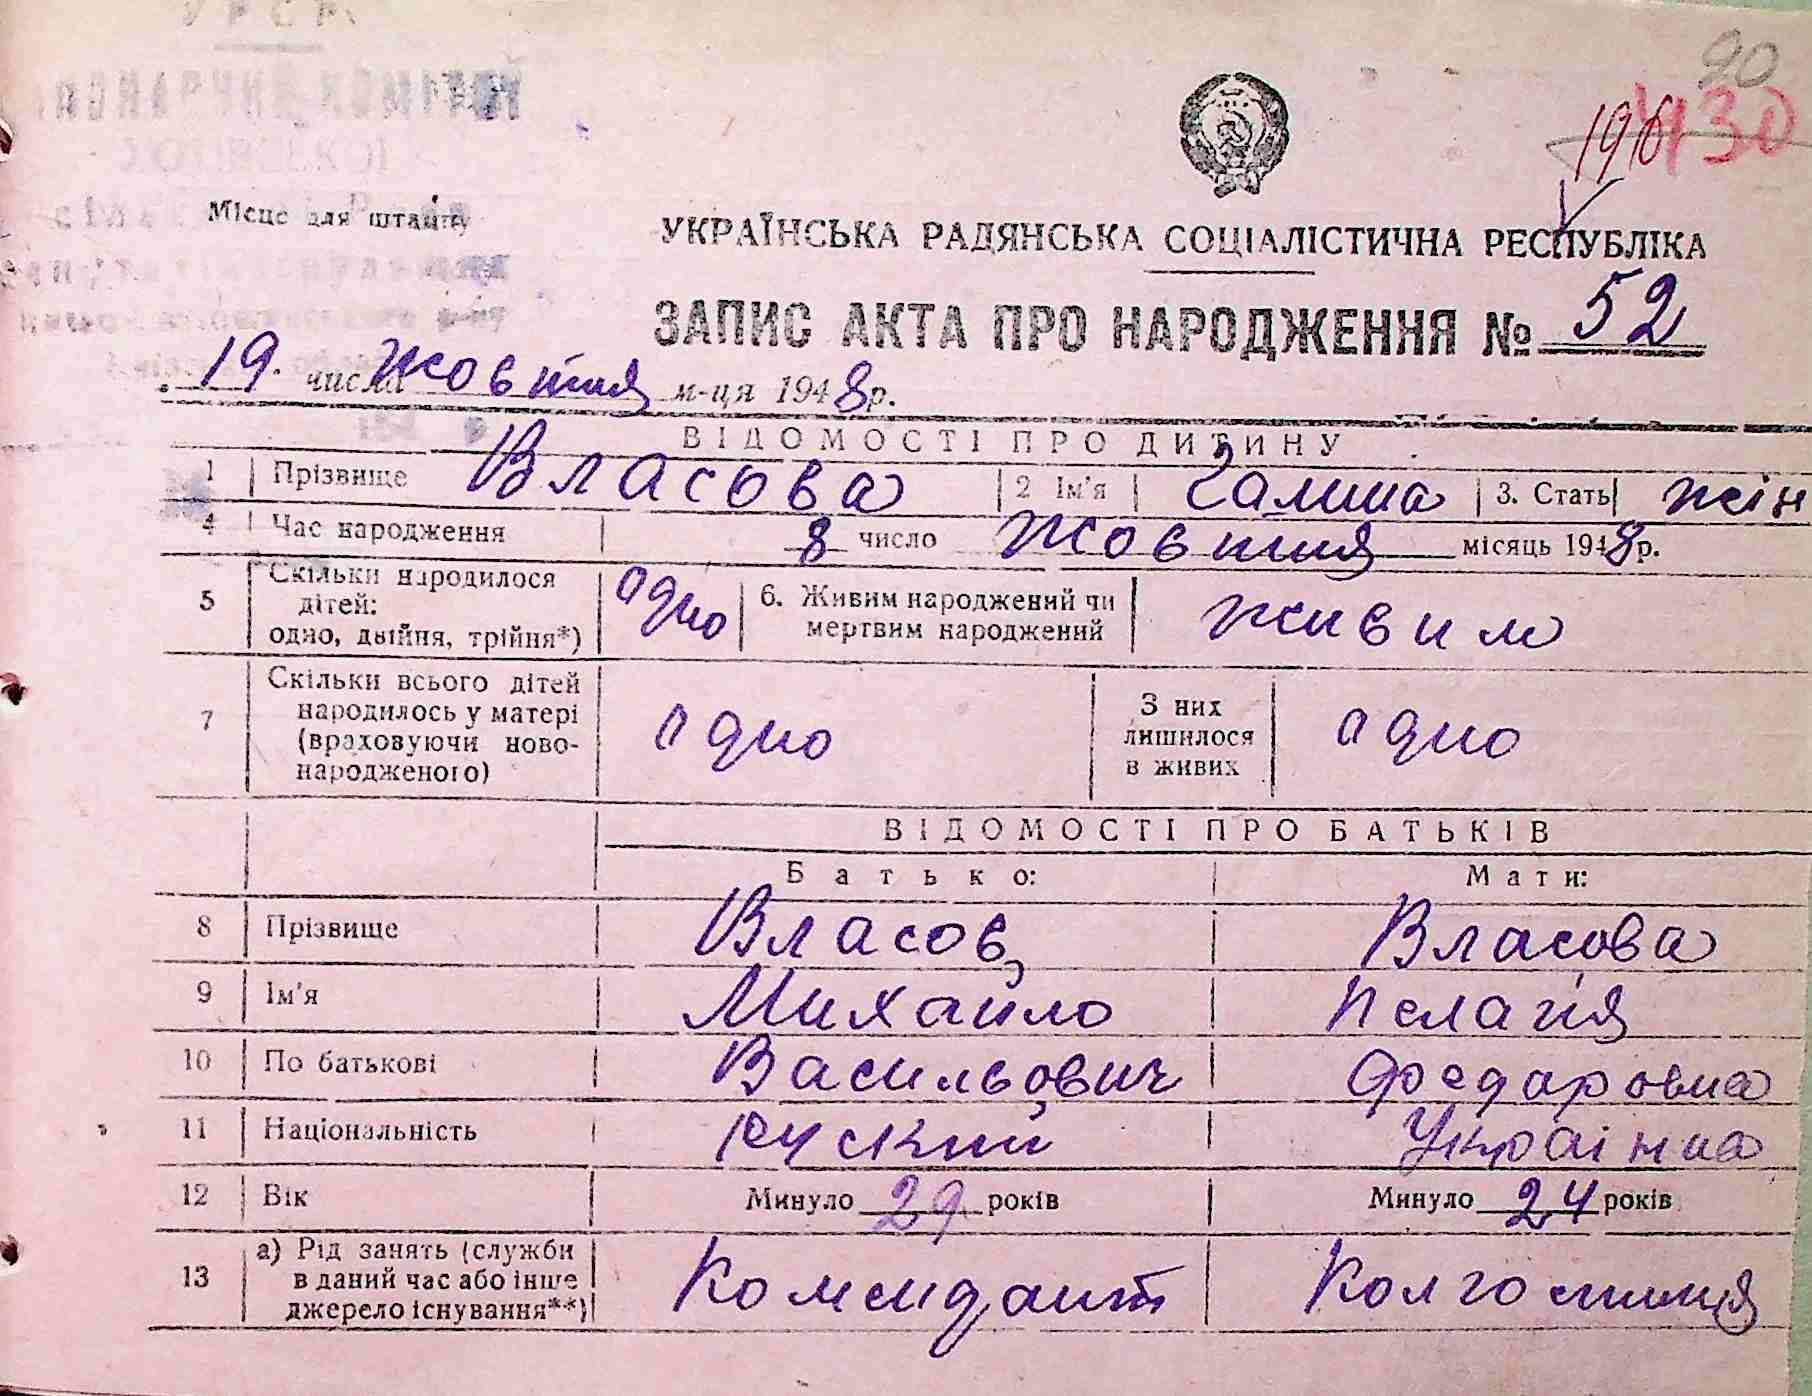 УРСР
90
430
Місце для штампу
УКРАЇНСЬКА РАДЯНСЬКА СОЦІАЛІСТИЧНА РЕСПУБЛІКА
ЗАПИС АКТА ПРО НАРОДЖЕННЯ № 52
19. числа жовтня м-ця 1948 р.
ВІДОМОСТІ ПРО ДИТИНУ
1 Прізвище Власова 2 Ім'я Галина 3. Стать жін
4 Час народження 8 число жовтня місяць 1948 р.
5 Скільки народилося дітей: одно, двійня, трійня*) одно 6. Живим народжений чи мертвим народжений живим
7 Скільки всього дітей народилось у матері (враховуючи ново-народженого) одно З них лишилося в живих одно
ВІДОМОСТІ ПРО БАТЬКІВ
Батько: Мати:
8 Прізвище Власов Власова
9 Ім'я Михайло Пелагія
10 По батькові Васильович Федаровна
11 Національність Руский Українка
12 Вік Минуло 29 років Минуло 24 років
13 а) Рід занять (служби в даний час або інше джерело існування**) Комендант Колгоспниця